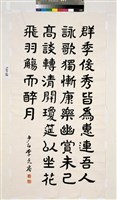 群季俊秀皆為惠連吾人
詠歌獨慚康樂幽賞未已
高談轉清開瓊筵以坐花
飛羽觴而醉月